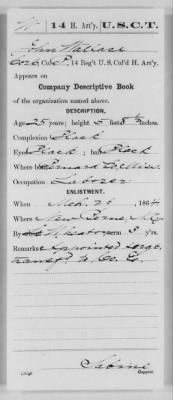 W | 14 H. Art'y. | U.S.C.T.
John Wallace
Co. , 14 Reg't U.S. Col'd H. Art'y.
Appears on
Company Descriptive Book
of the organization named above.
DESCRIPTION.
Age 25 years; height 5 feet inches.
Complexion Black
Eyes Black; hair Black
Where born
Occupation Laborer
ENLISTMENT.
When Mch. 21, 1864
Where New Berne, N.C.
By term 3 y'rs.
Remarks: Appointed
transf'd to Co.
Copyist.